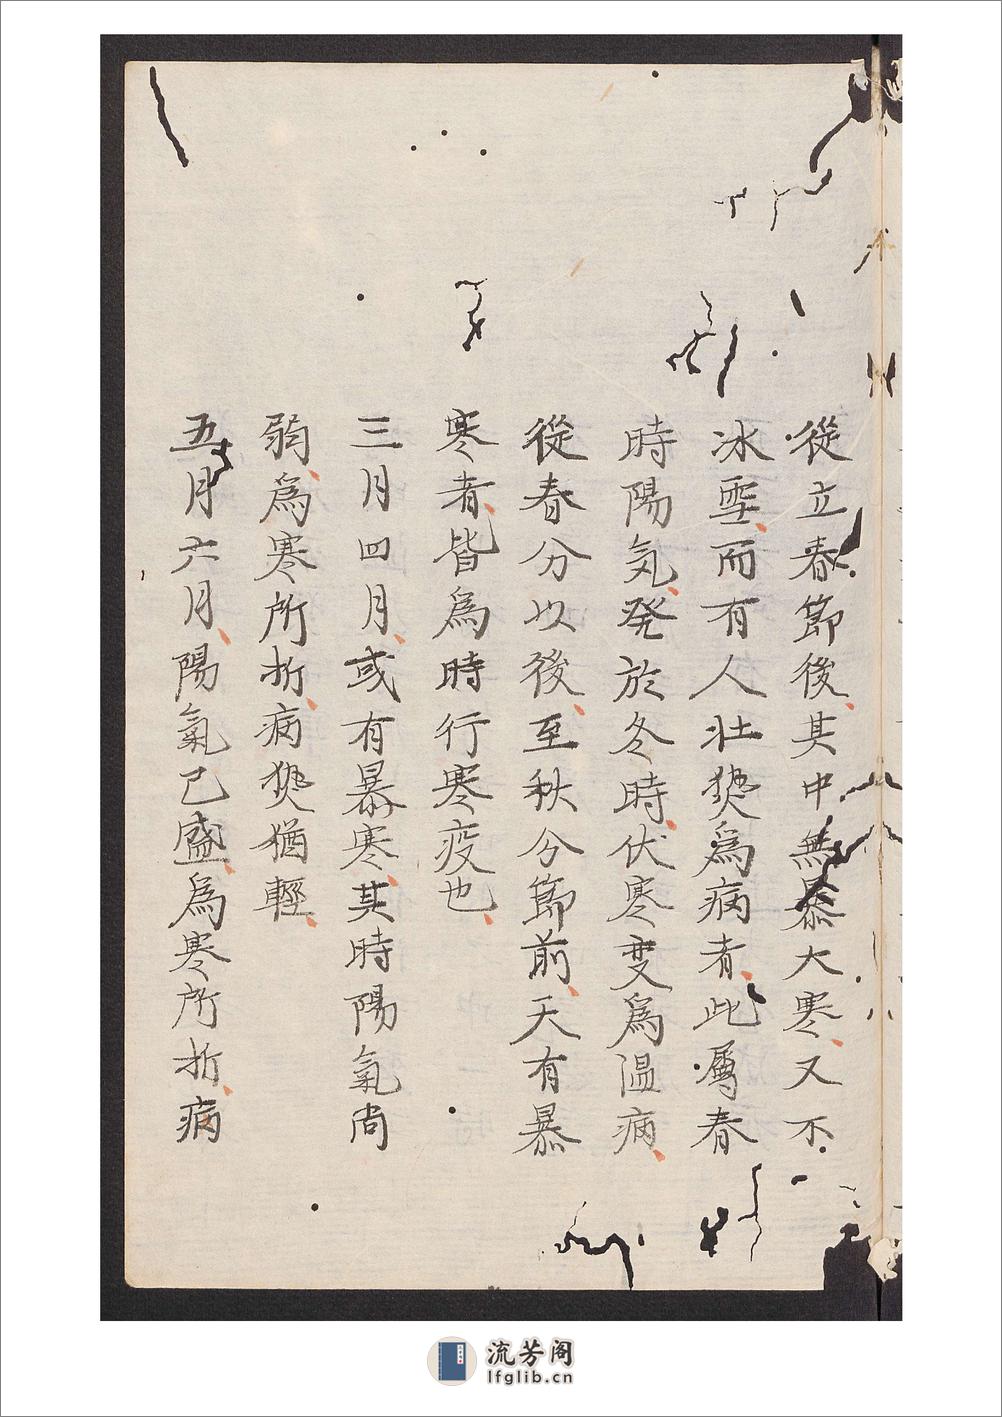 從立春節後其中無暴大寒又不
冰雪而有人壯𤍠為病者此屬春
時陽気発於冬時伏寒变為温病
從春分以後至秋分節前天有暴
寒者皆為時行寒疫也
三月四月或有暴寒其時陽氣尚
弱為寒所折病𤍠猶輕
五月六月陽氣已盛為寒所折病
流芳阁
lfglib.cn